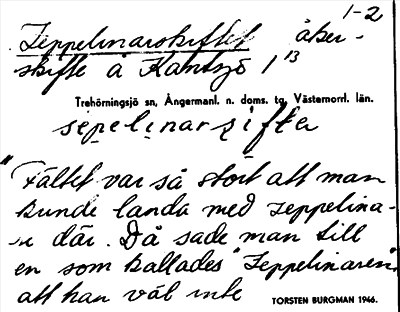 1-2
Zeppelinarskiftet åker-
skifte å Kantsjö 1¹³
Trehörningsjö sn, Ångermanl. n. doms. tg. Västernorrl. län.
sepelinarsifter
"Fältet var så stort att man
kunde landa med zeppelina-
re där. Då sade man till
en som kallades "Zeppelinaren"
att han väl inte
TORSTEN BURGMAN 1946.